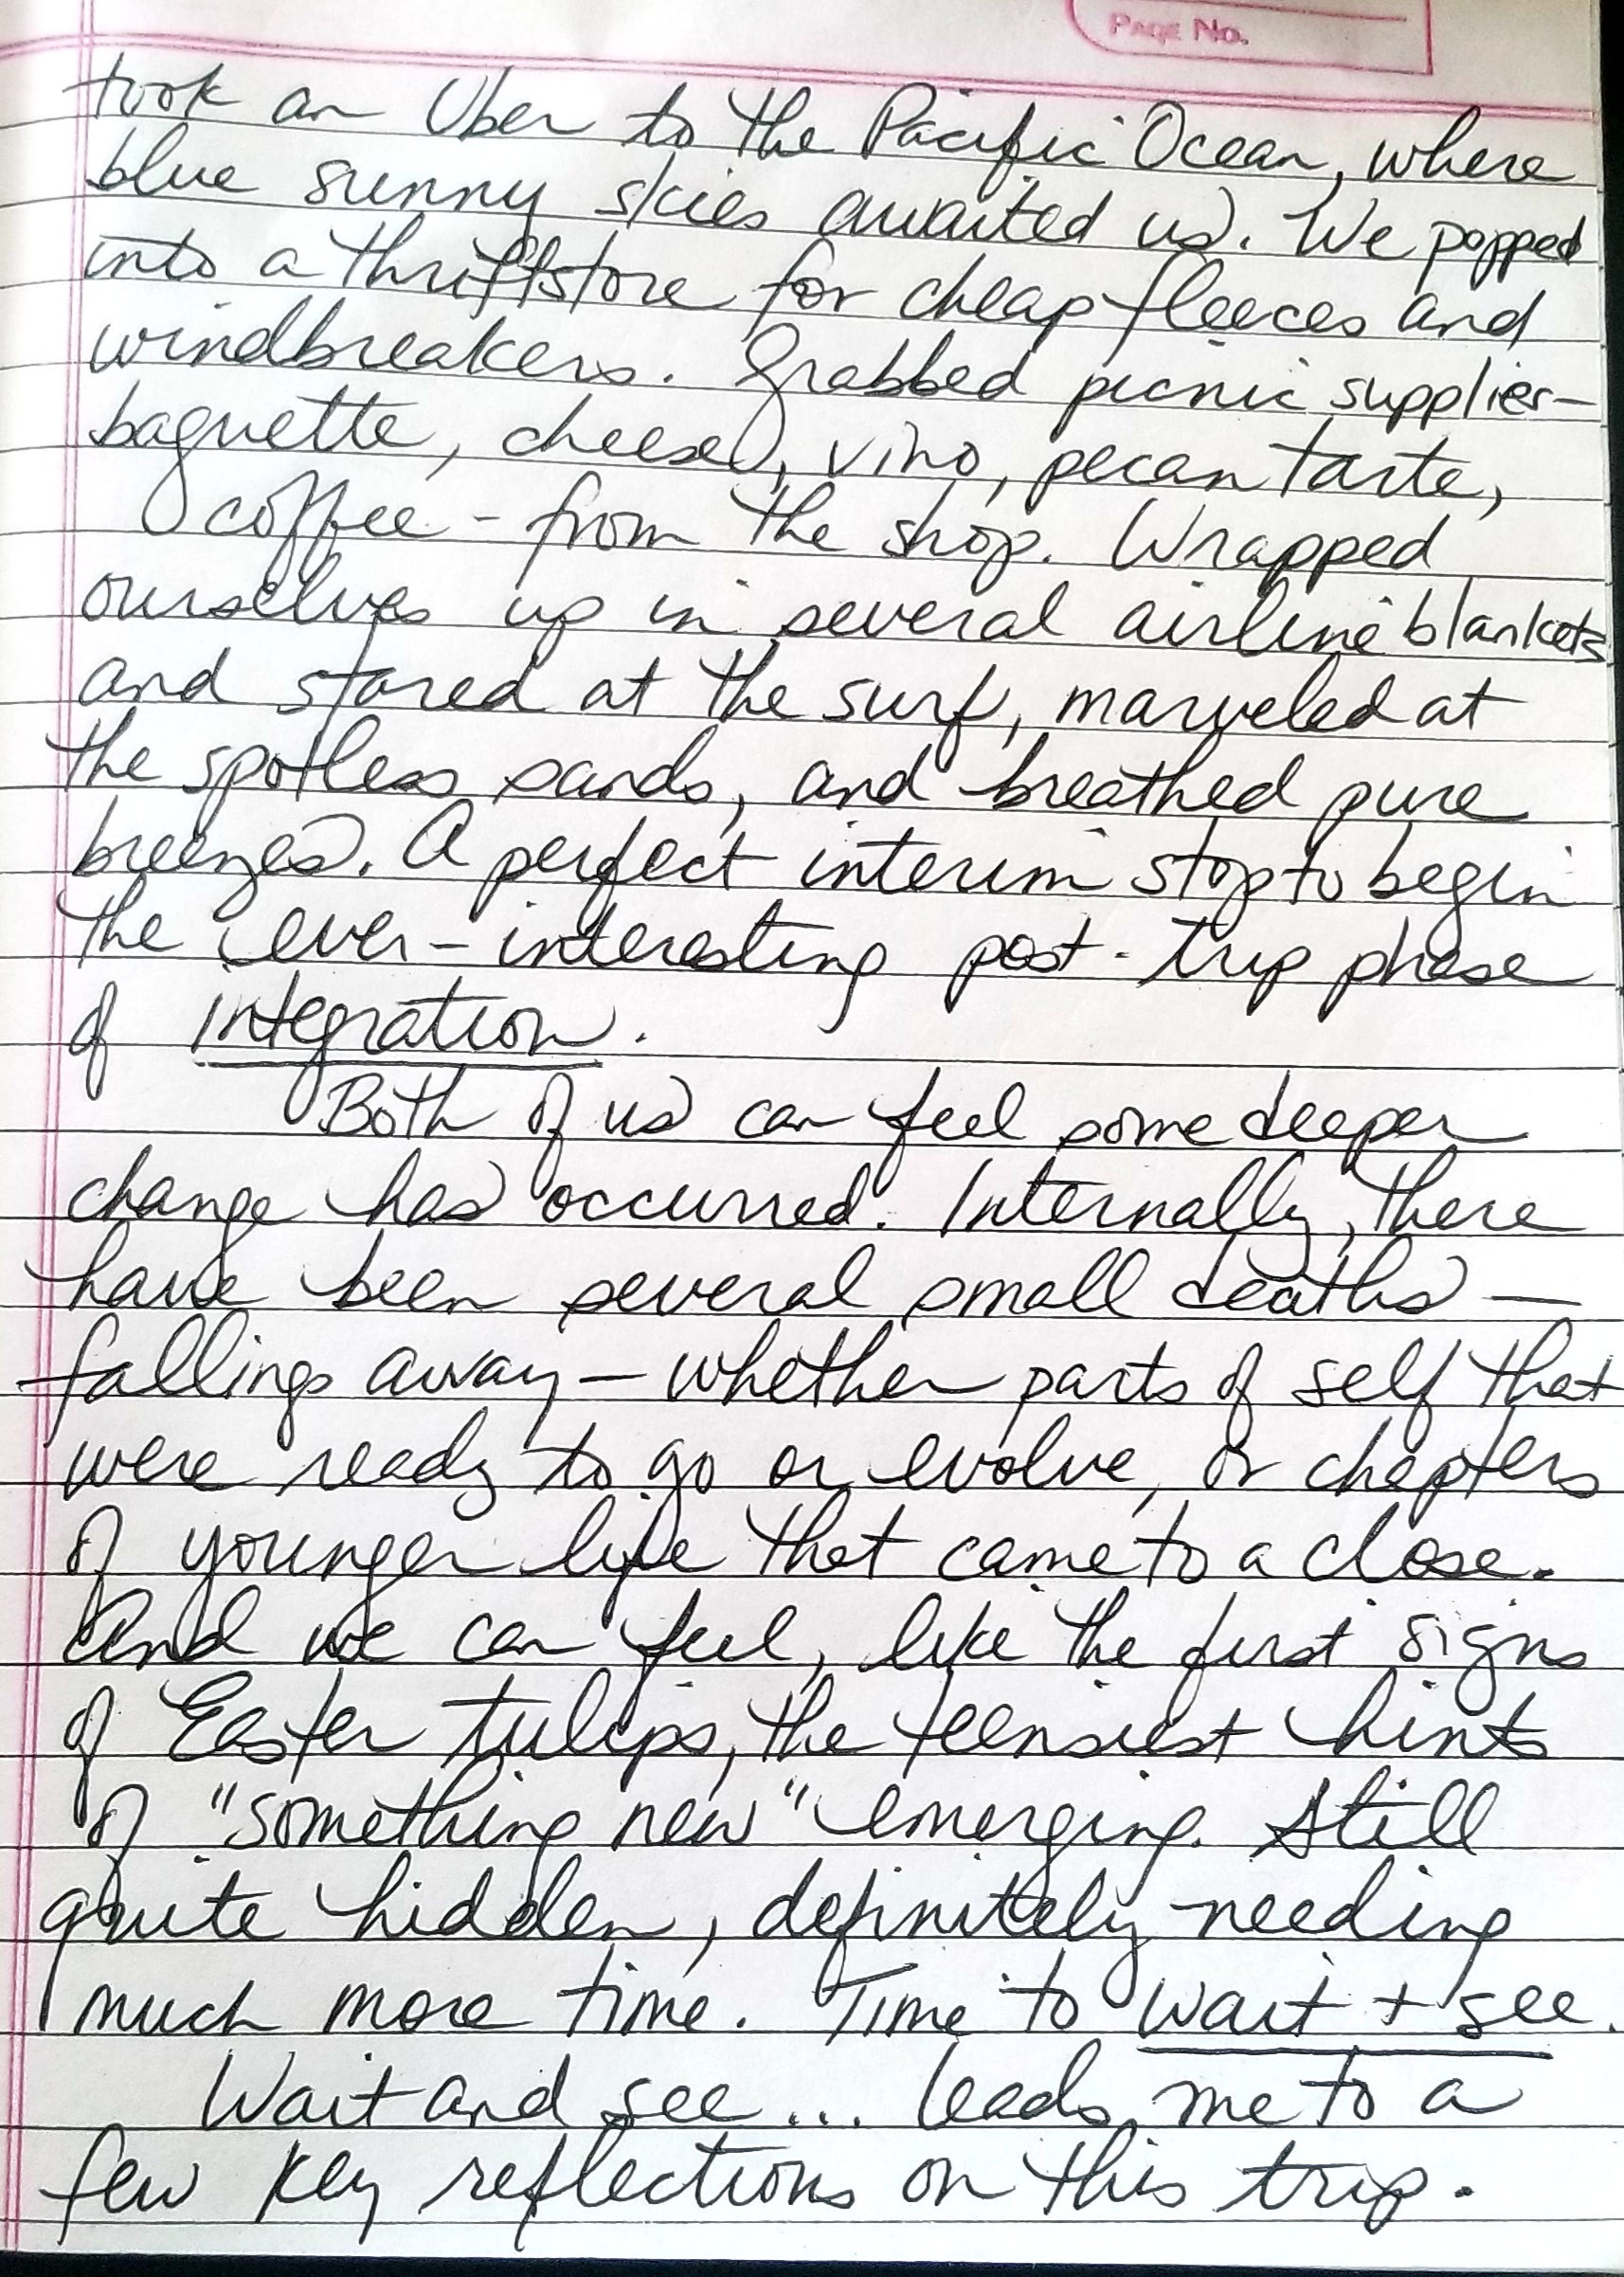 PAGE No.
took an Uber to the Pacific Ocean, where
blue sunny skies awaited us. We popped
into a thriftstore for cheap fleeces and
windbreakers. Grabbed picnic supplies—
baguette, cheese, vino, pecan tarte,
coffee - from the shop. Wrapped
ourselves up in several airline blankets
and stared at the surf, marveled at
the spotless sands, and breathed pure
breezes. A perfect interim stop to begin
the ever-interesting post-trip phase
of integration.
Both of us can feel some deeper
change has occurred. Internally, there
have been several small deaths —
fallings away — whether parts of self that
were ready to go or evolve, or chapters
of younger life that came to a close.
And we can feel, like the first signs
of Easter tulips, the teensiest hints
of "something new" emerging. Still
quite hidden, definitely needing
much more time. Time to wait + see.
Wait and see... leads me to a
few key reflections on this trip.